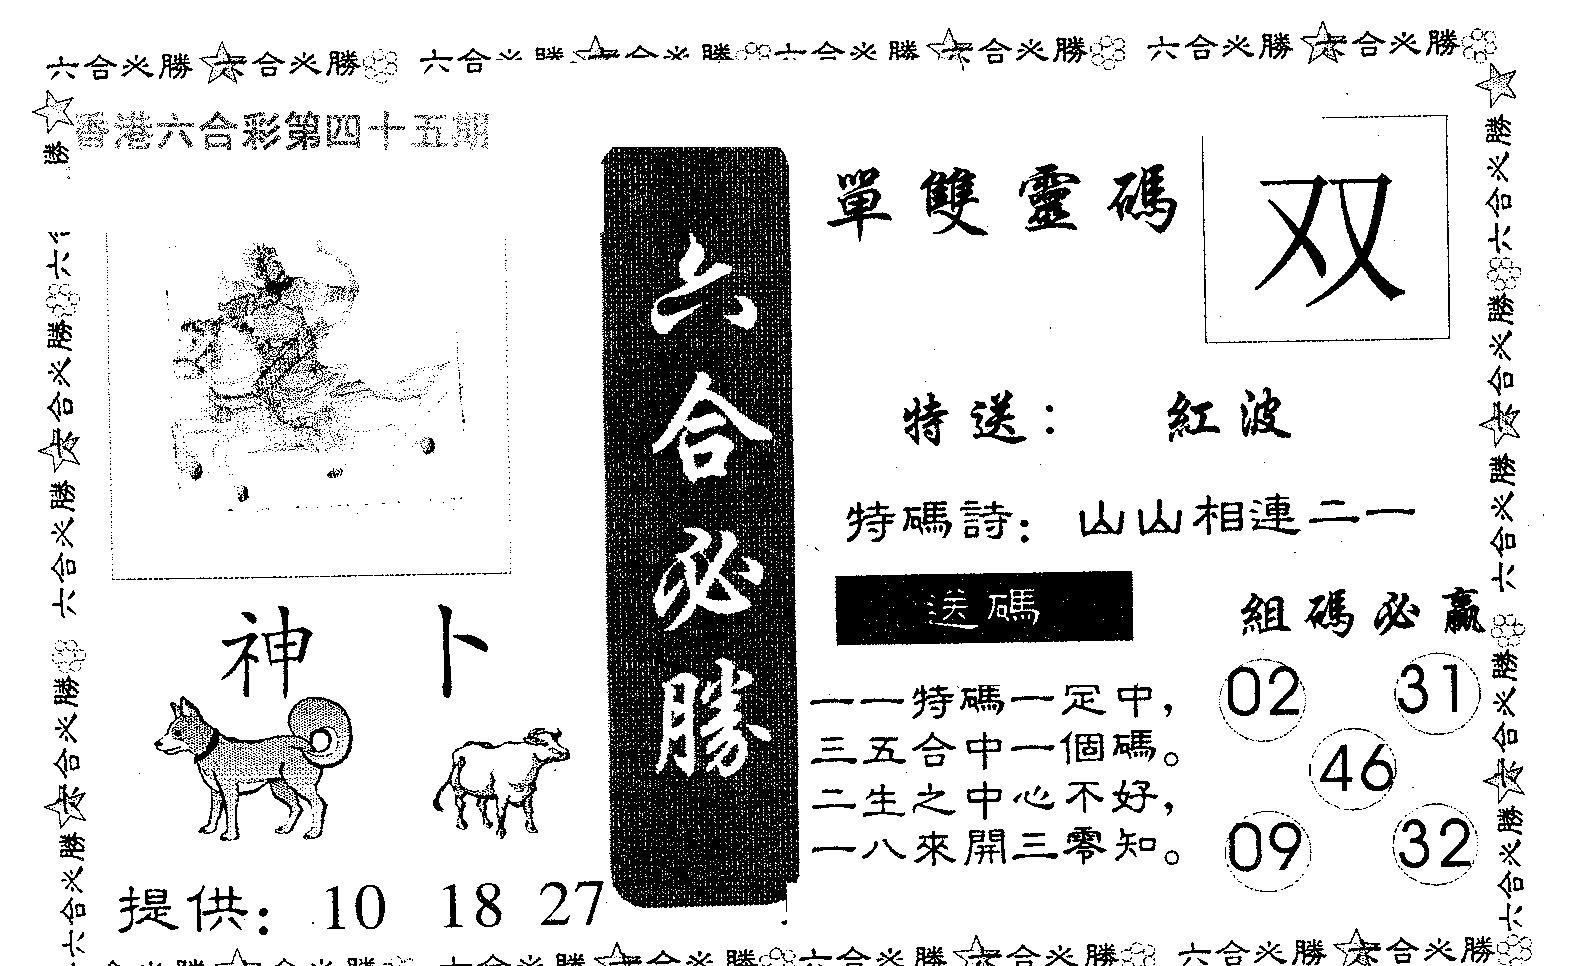 六合必勝 六合必勝 六合必勝 六合必勝 六合必勝 六合必勝 六合必勝 六合必勝
香港六合彩第四十五期
六合必勝
單雙靈碼
双
特送： 紅波
特碼詩：山山相連二一
送碼
組碼必贏
一一特碼一定中，
三五合中一個碼。
二生之中心不好，
一八來開三零知。
02 31
46
09 32
神 卜
提供：10 18 27
六合必勝 六合必勝 六合必勝 六合必勝
六合必勝 六合必勝 六合必勝 六合必勝 六合必勝
六合必勝 六合必勝 六合必勝 六合必勝 六合必勝 六合必勝 六合必勝